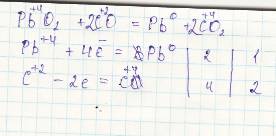 Pb⁺⁴O₂ + 2C⁺²O = Pb⁰ + 2C⁺⁴O₂
Pb⁺⁴ + 4ē = Pb⁰ | 2 | 1
C⁺² − 2e = C⁺⁴ | 4 | 2